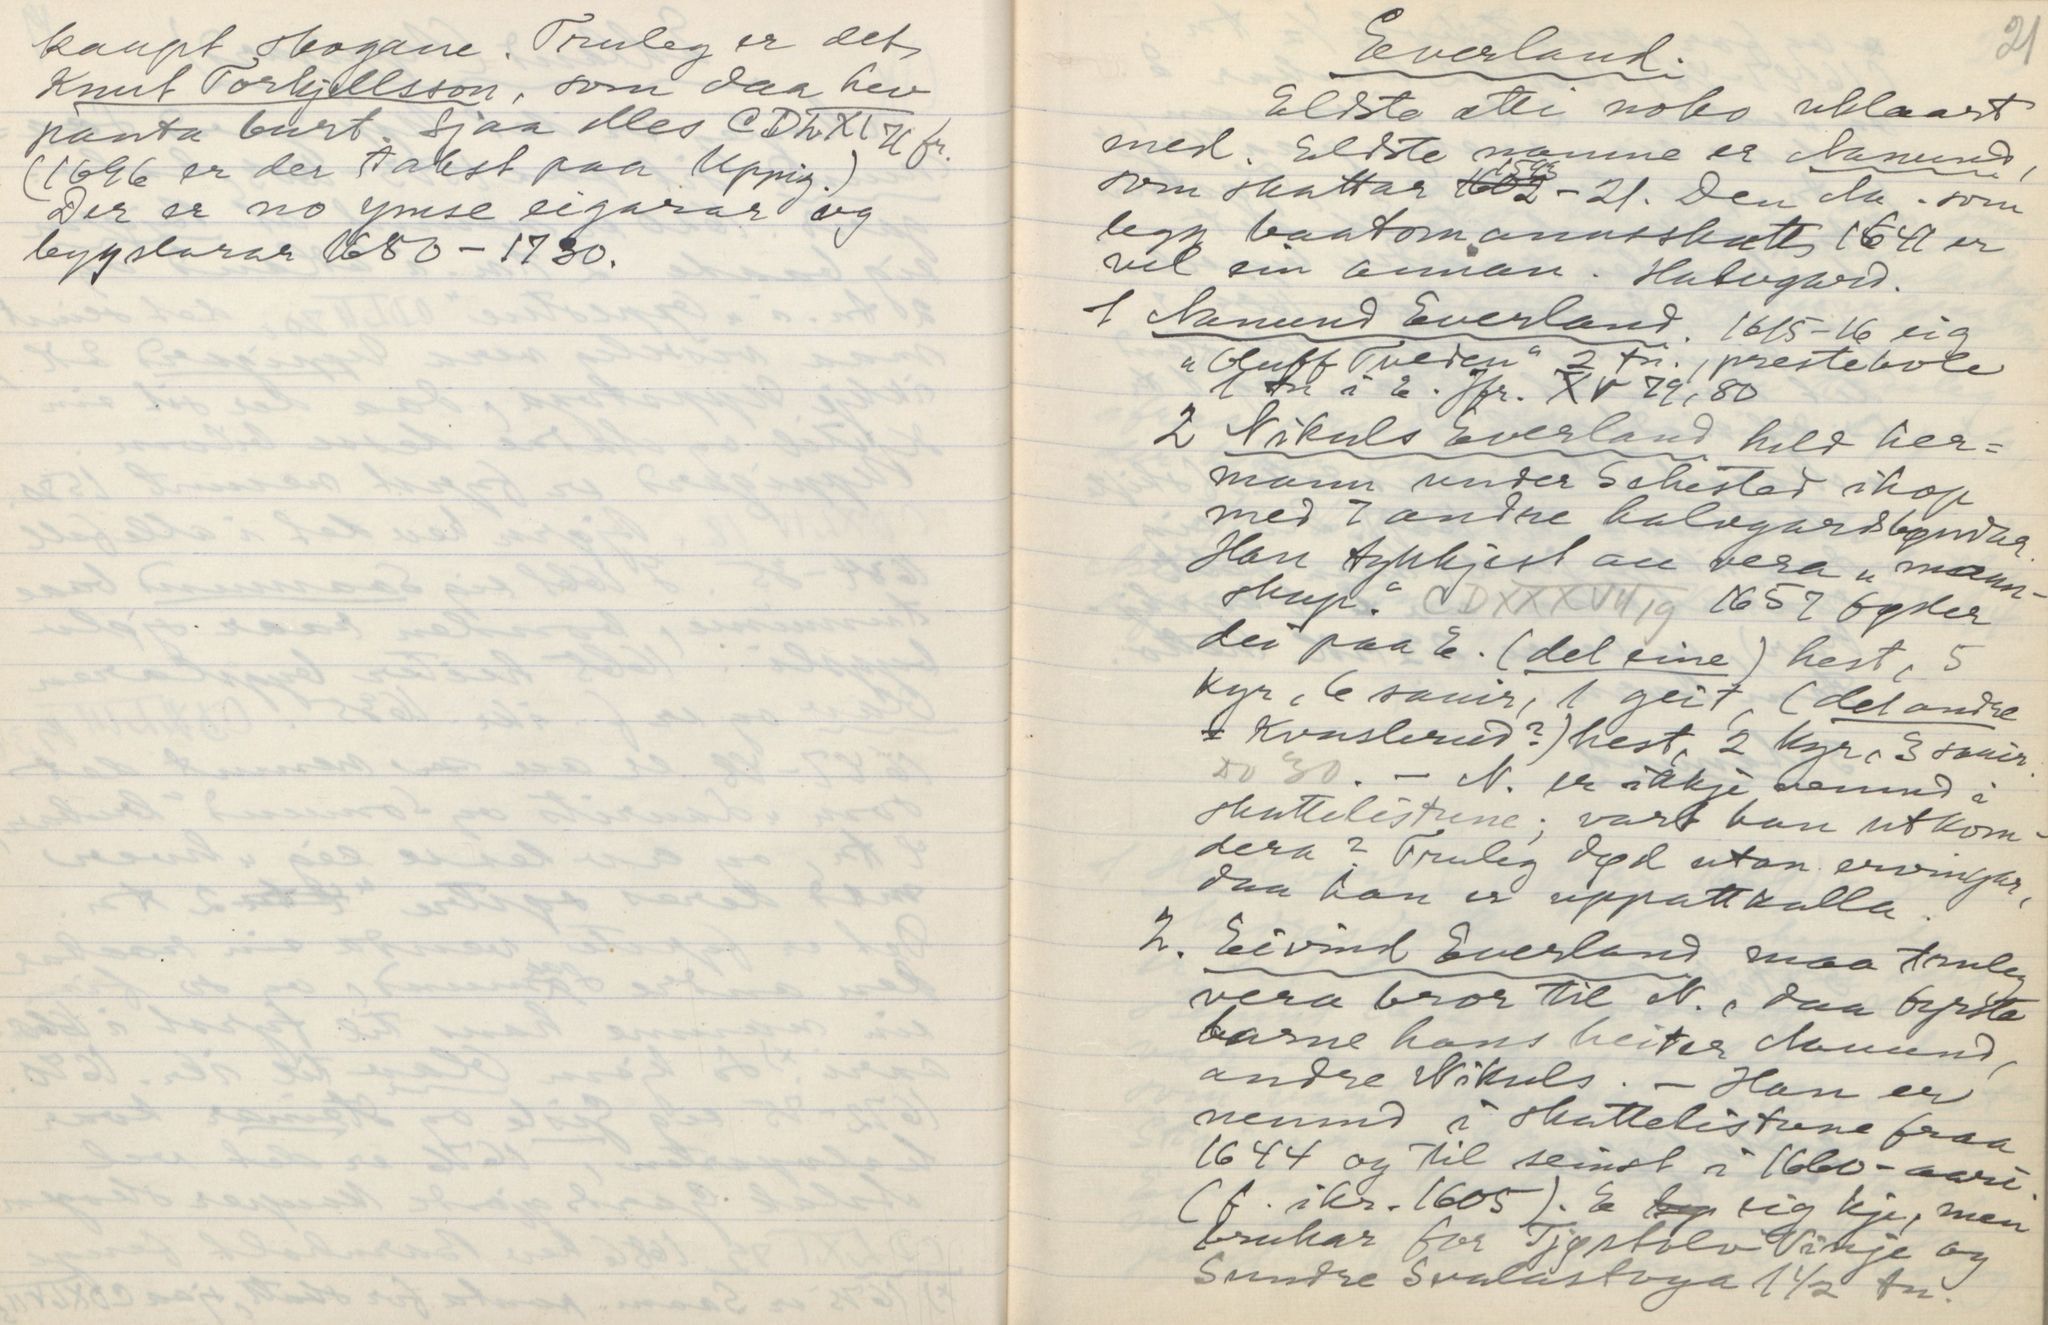 kaupt skogane. Truleg er det
Knut Torkjellsson, som daa hev
panta burt. Sjaa elles CDLXI 71 fr.
(1696 er der takst paa Uppig.)
Der er no ymse eigarar og
bygslarar 1680-1730.
21
Everland.
Eldste ætti noko uklaart
med. Eldste namne er Aanund,
1593
som skattar 1602-21. Den Aa. som
legg baatsmannsskatt 1641 er
vel ein annan. Halvgard.
1 Aanund Everland. 1615-16 eig
"Oluff Tveden" 2 tn., prestebole
1 tn i E. Jfr. XV 79, 80
2 Nikuls Everland held her=
mann under Sehested ihop
med 7 andre halvgardsbøndar.
Han tykkjest au vera "mann-
skap." CDXXXVII 19 1657 føder
dei paa E. (det eine) hest, 5
kyr, 6 sauir, 1 geit, (det andre
= Kvuslerud?) hest, 2 kyr, 3 sauir.
DO 30. - N. er ikkje nemnd i
skattelistune; vart han utkom-
dera? Truleg død utan ervingar,
daa han er uppattkalla.
2. Eivind Everland maa truleg
vera bror til N., daa fyrste
barne hans heiter Aanund,
andre Nikuls. - Han er
nemnd i skattelistune fraa
1644 og til seinst i 1660-aari.
(f. ikr. 1605). E eig kje, men
brukar for Tjøstolv Vinje og
Sundre Svalastoga 1 1/2 tn.